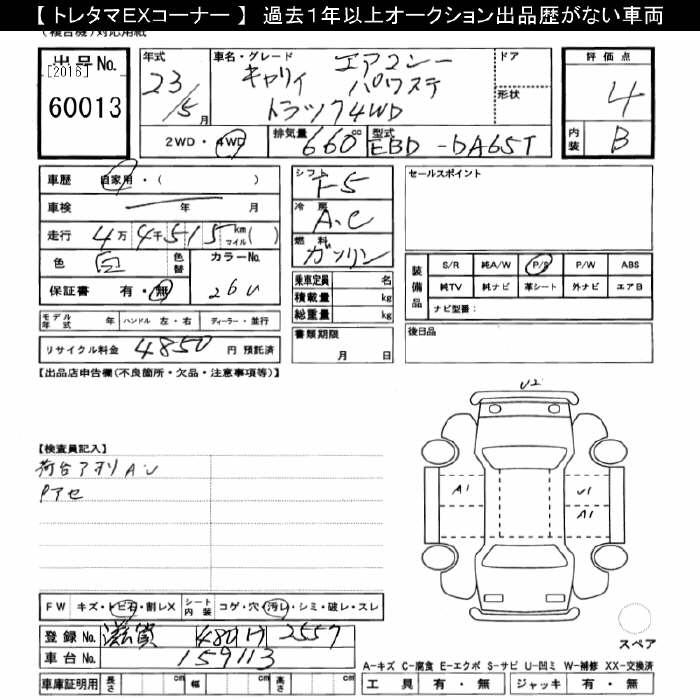 【 トレタマEXコーナー 】 過去1年以上オークション出品歴がない車両
(複合機)対応用紙
出品No. [2016] 60013
年式 23/5 月
車名・グレード キャリイ エアコン パワステ トラック4WD
ドア
形状
評価点 4
内装 B
2WD・4WD 排気量 660 cc 型式 EBD-DA65T
車歴 自家用・( )
車検 年 月
走行 4万 4千 515 km マイル ( )
色 白 色替 カラーNo. 26U
保証書 有・無
モデル年式 年 ハンドル 左・右 ディーラー・並行
リサイクル料金 4850 円 預託済
シフト F5
冷房 A.C
燃料 ガソリン
乗車定員 名
積載量 kg
総重量 kg
書類期限 月 日
セールスポイント
装備品 S/R 純A/W P/S P/W ABS
純TV 純ナビ 革シート 外ナビ エアB
ナビ型番:
後日品
【出品店申告欄(不良箇所・欠品・注意事項等)】
U2
A1 U1
A1
【検査員記入】
荷台アオリ A.U
Pアセ
FW キズ・トビ石・割レX シート内装 コゲ・穴・汚レ・シミ・破レ・スレ
登録No. 滋賀 480 け 2557
車台No. 159113
車庫証明用 長さ cm 幅 cm 高さ cm
スペア
A-キズ C-腐食 E-エクボ S-サビ U-凹ミ W-補修 XX-交換済
工具 有・無 ジャッキ 有・無